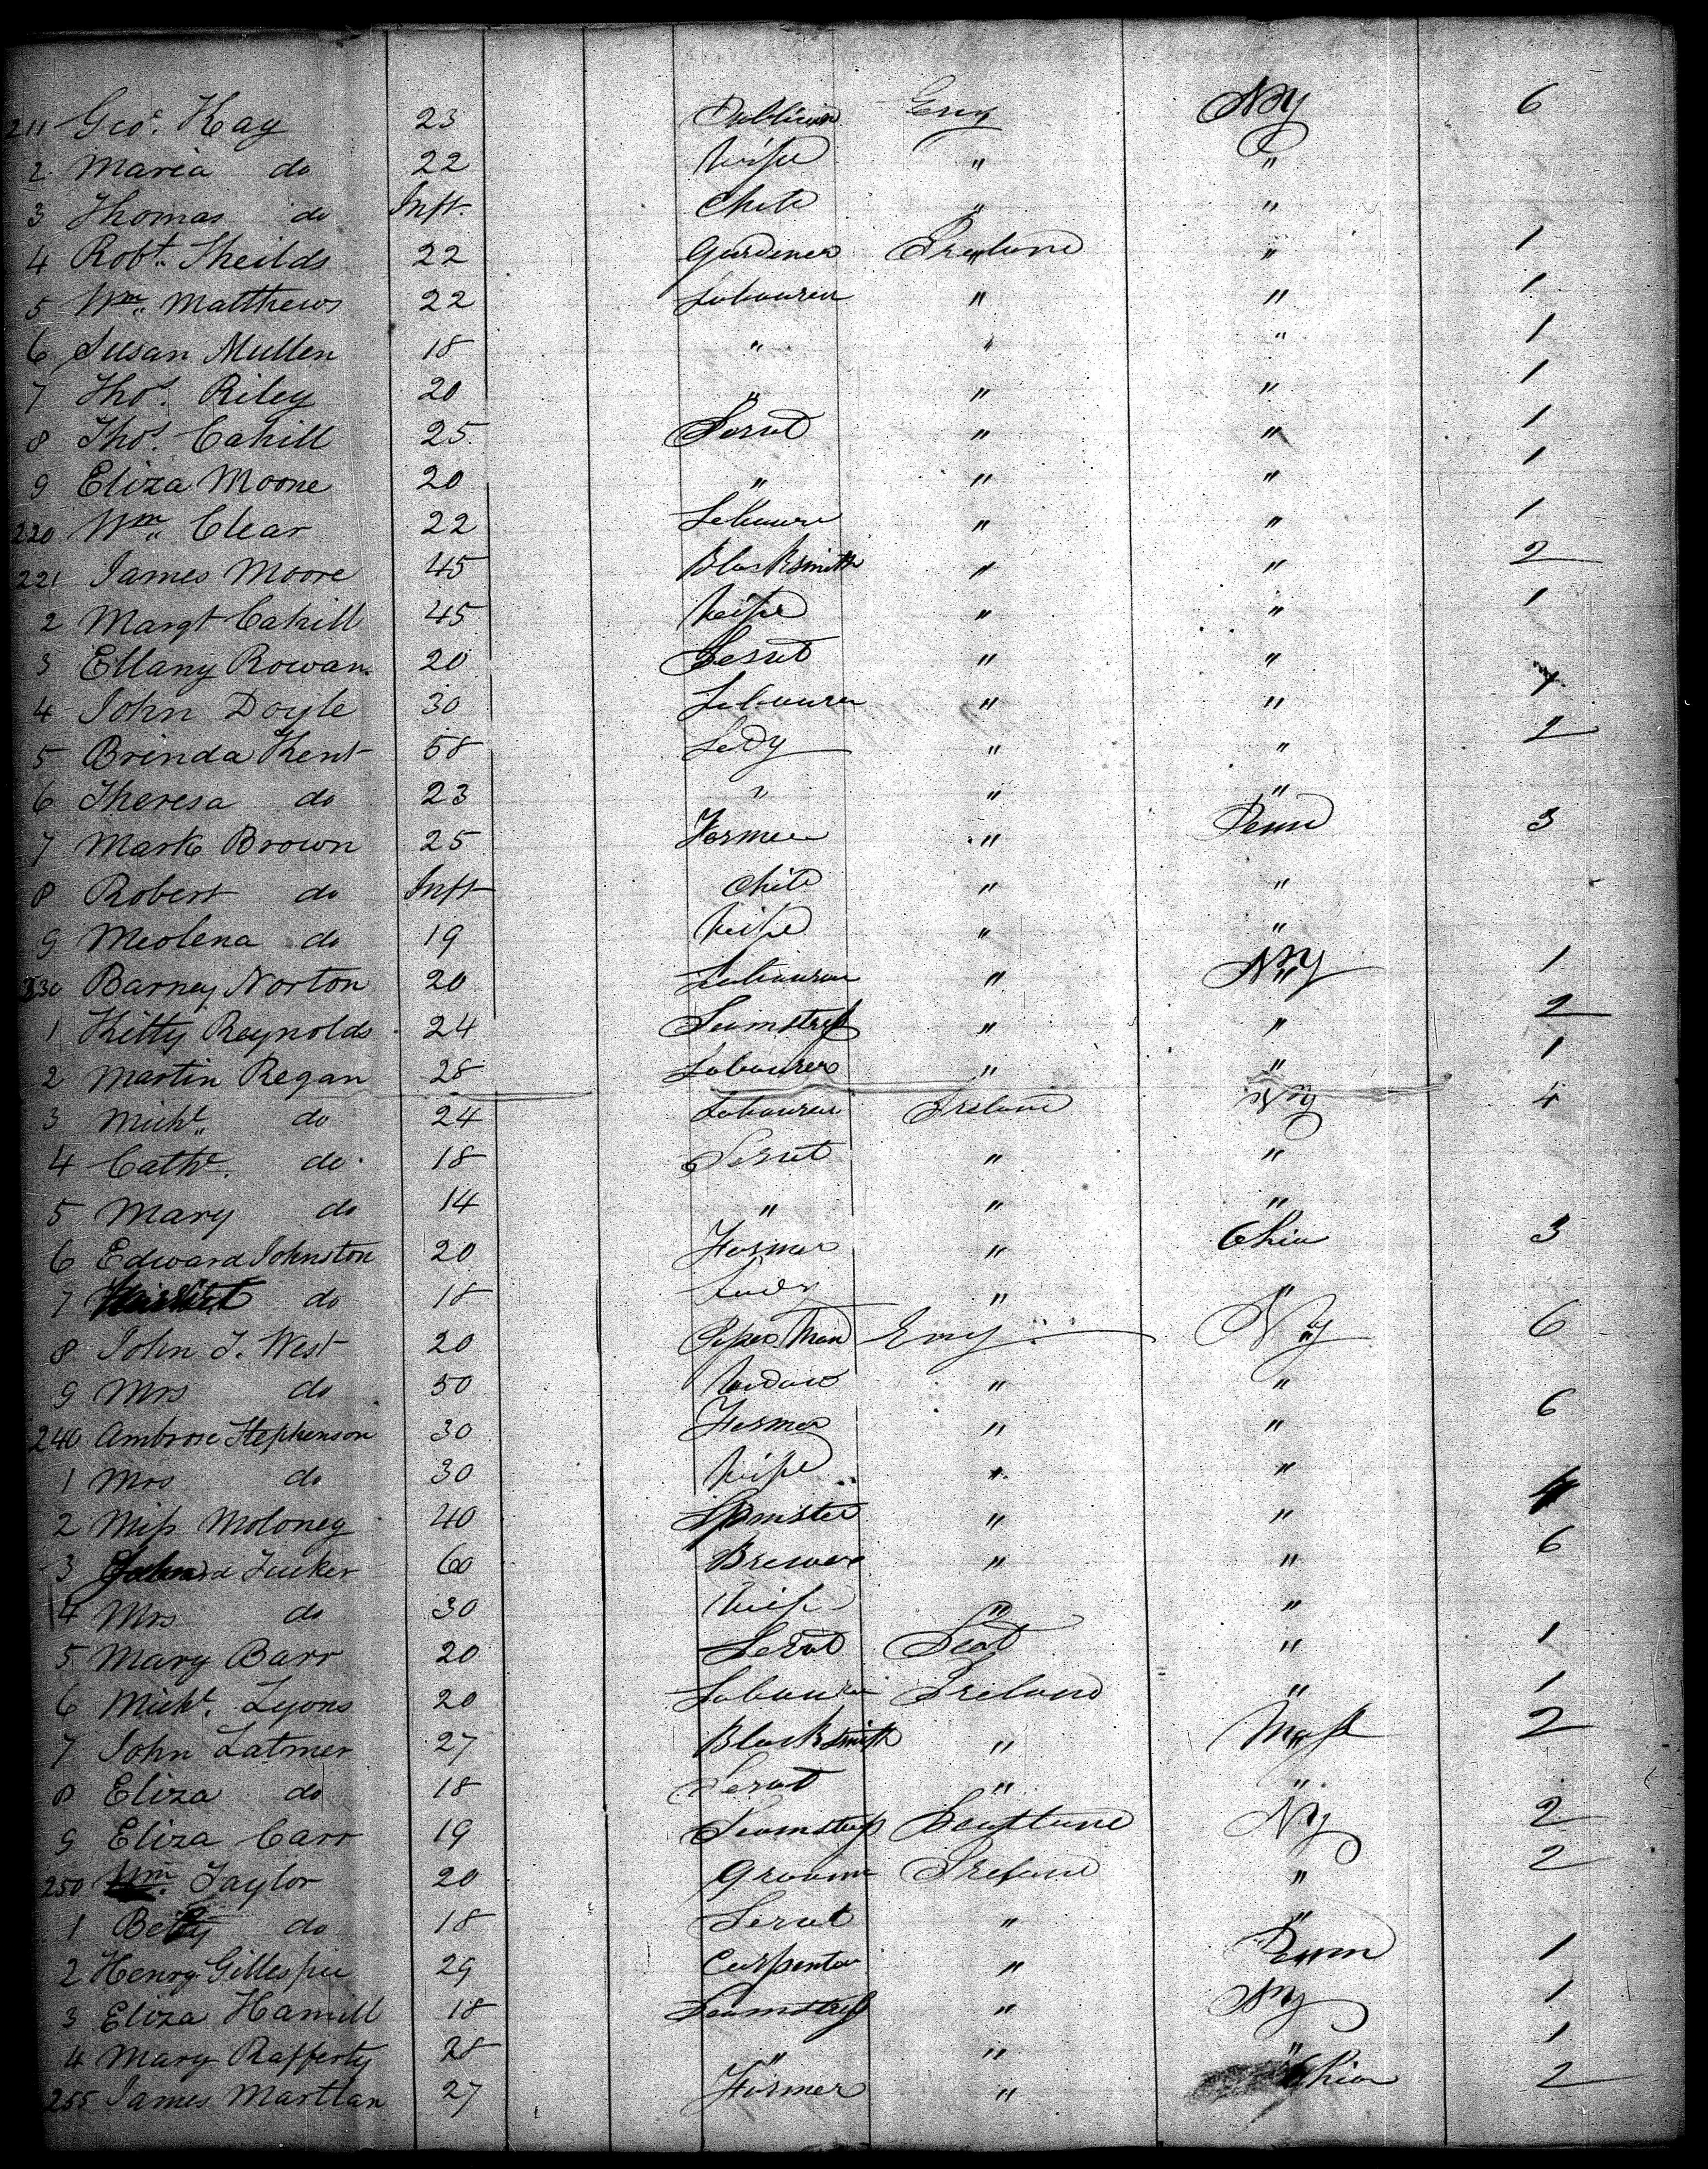 211 Geo. Kay 23 Publican Eng NY 6
2 Maria do 22 Wife " "
3 Thomas do Inft. Child " "
4 Robt. Sheilds 22 Gardener Ireland " 1
5 Wm. Matthews 22 Labourer " " 1
6 Susan Mullen 18 " " " 1
7 Thos. Riley 20 " " " 1
8 Thos. Cahill 25 Servt " " 1
9 Eliza Moone 20 " " " 1
220 Wm. Clear 22 Labourer " " 1
221 James Moore 45 Blacksmith " " 2
2 Margt Cahill 45 Wife " " 1
3 Ellany Rowan 20 Servt " "
4 John Doyle 30 Labourer " " 1
5 Brinda Kent 58 Lady " " 2
6 Theresa do 23 " " "
7 Mark Brown 25 Farmer " Penn 3
8 Robert do Inft Child " "
9 Meolena do 19 Wife " "
230 Barney Norton 20 Labourer " NY 1
1 Kitty Reynolds 24 Seamstress " " 2
2 Martin Regan 28 Labourer " " 1
3 Michl. do 24 Labourer Ireland NY 4
4 Cathe. do 18 Servt " "
5 Mary do 14 " " "
6 Edward Johnston 20 Farmer " Ohio 3
7 do 18 Lady " "
8 John J. West 20 Man Eng NY 6
9 Mrs do 50 Widow " "
240 Ambrose Stephenson 30 Farmer " " 6
1 Mrs do 30 Wife " "
2 Miss Moloney 40 Spinster " "
3 Tucker 60 Brewer " " 6
4 Mrs do 30 Wife " "
5 Mary Barr 20 Servt Scot " 1
6 Michl. Lyons 20 Labourer Ireland " 1
7 John Latmer 27 Blacksmith " Mass 2
8 Eliza do 18 Servt " "
9 Eliza Carr 19 Seamstress Scotland NY 2
250 Wm. Taylor 20 Groom Ireland " 2
1 Betty do 18 Servt " "
2 Henry Gillespie 29 Carpenter " Penn 1
3 Eliza Hamill 18 Seamstress " NY 1
4 Mary Rafferty 28 " " " 1
255 James Martlan 27 Farmer " Ohio 2